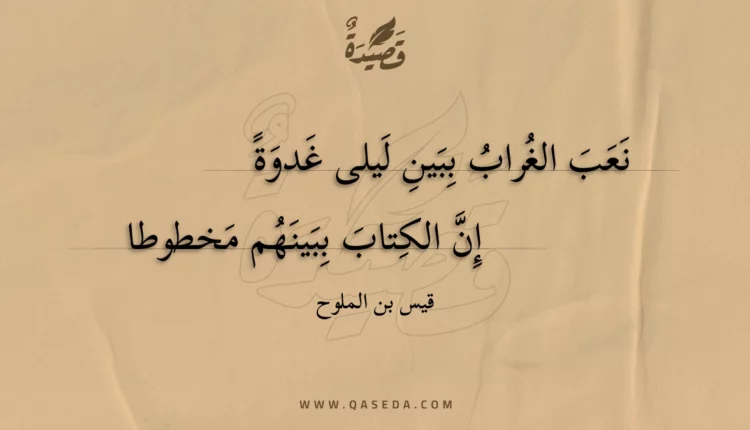 قَصِيْدَةٌ
نَعَبَ الغُرابُ بِبَينِ لَيلى غَدوَةً
إِنَّ الكِتابَ بِبَينَهُم مَخطوطا
قيس بن الملوح
WWW.QASEDA.COM